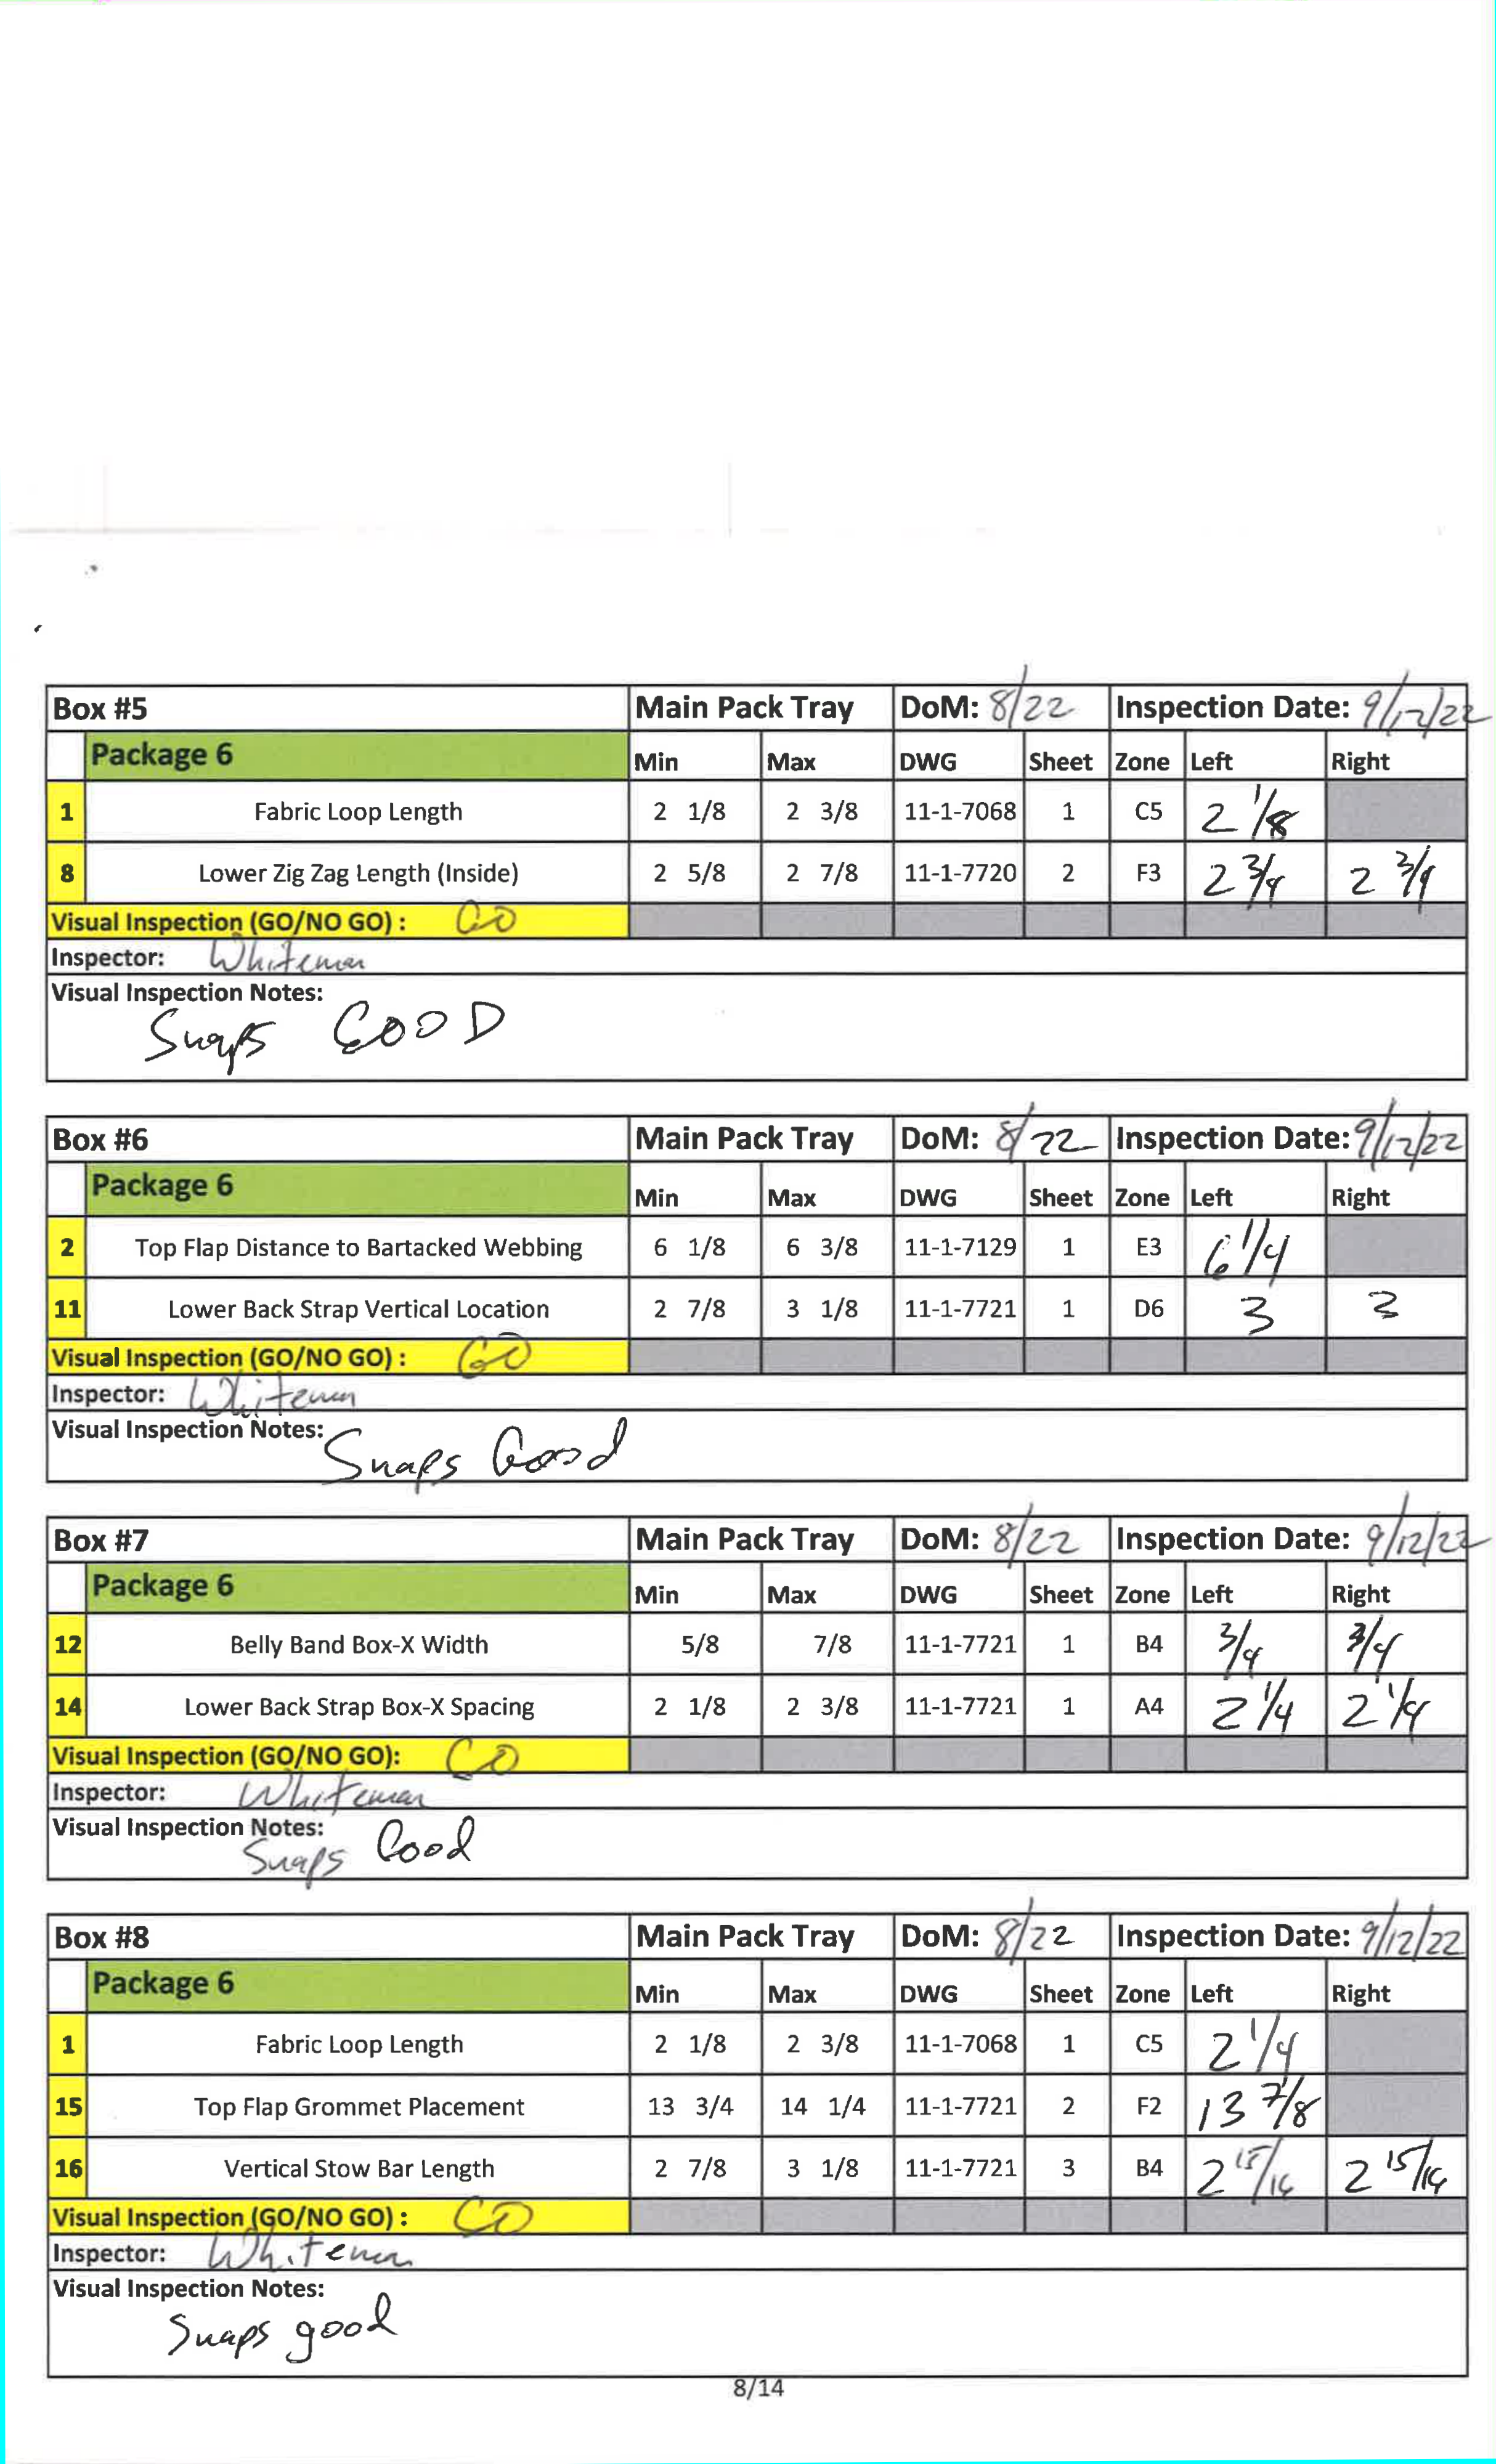 Box #5 Main Pack Tray DoM: 8/22 Inspection Date: 9/12/22
Package 6 Min Max DWG Sheet Zone Left Right
1 Fabric Loop Length 2 1/8 2 3/8 11-1-7068 1 C5 2 1/8
8 Lower Zig Zag Length (Inside) 2 5/8 2 7/8 11-1-7720 2 F3 2 3/4 2 3/4
Visual Inspection (GO/NO GO) : GO
Inspector: Whiteman
Visual Inspection Notes:
Snaps GOOD
Box #6 Main Pack Tray DoM: 8/22 Inspection Date: 9/12/22
Package 6 Min Max DWG Sheet Zone Left Right
2 Top Flap Distance to Bartacked Webbing 6 1/8 6 3/8 11-1-7129 1 E3 6 1/4
11 Lower Back Strap Vertical Location 2 7/8 3 1/8 11-1-7721 1 D6 3 3
Visual Inspection (GO/NO GO) : GO
Inspector: Whiteman
Visual Inspection Notes: Snaps Good
Box #7 Main Pack Tray DoM: 8/22 Inspection Date: 9/12/22
Package 6 Min Max DWG Sheet Zone Left Right
12 Belly Band Box-X Width 5/8 7/8 11-1-7721 1 B4 3/4 3/4
14 Lower Back Strap Box-X Spacing 2 1/8 2 3/8 11-1-7721 1 A4 2 1/4 2 1/4
Visual Inspection (GO/NO GO): GO
Inspector: Whiteman
Visual Inspection Notes:
Snaps Good
Box #8 Main Pack Tray DoM: 8/22 Inspection Date: 9/12/22
Package 6 Min Max DWG Sheet Zone Left Right
1 Fabric Loop Length 2 1/8 2 3/8 11-1-7068 1 C5 2 1/4
15 Top Flap Grommet Placement 13 3/4 14 1/4 11-1-7721 2 F2 13 7/8
16 Vertical Stow Bar Length 2 7/8 3 1/8 11-1-7721 3 B4 2 15/16 2 15/16
Visual Inspection (GO/NO GO) : GO
Inspector: Whiteman
Visual Inspection Notes:
Snaps good
8/14